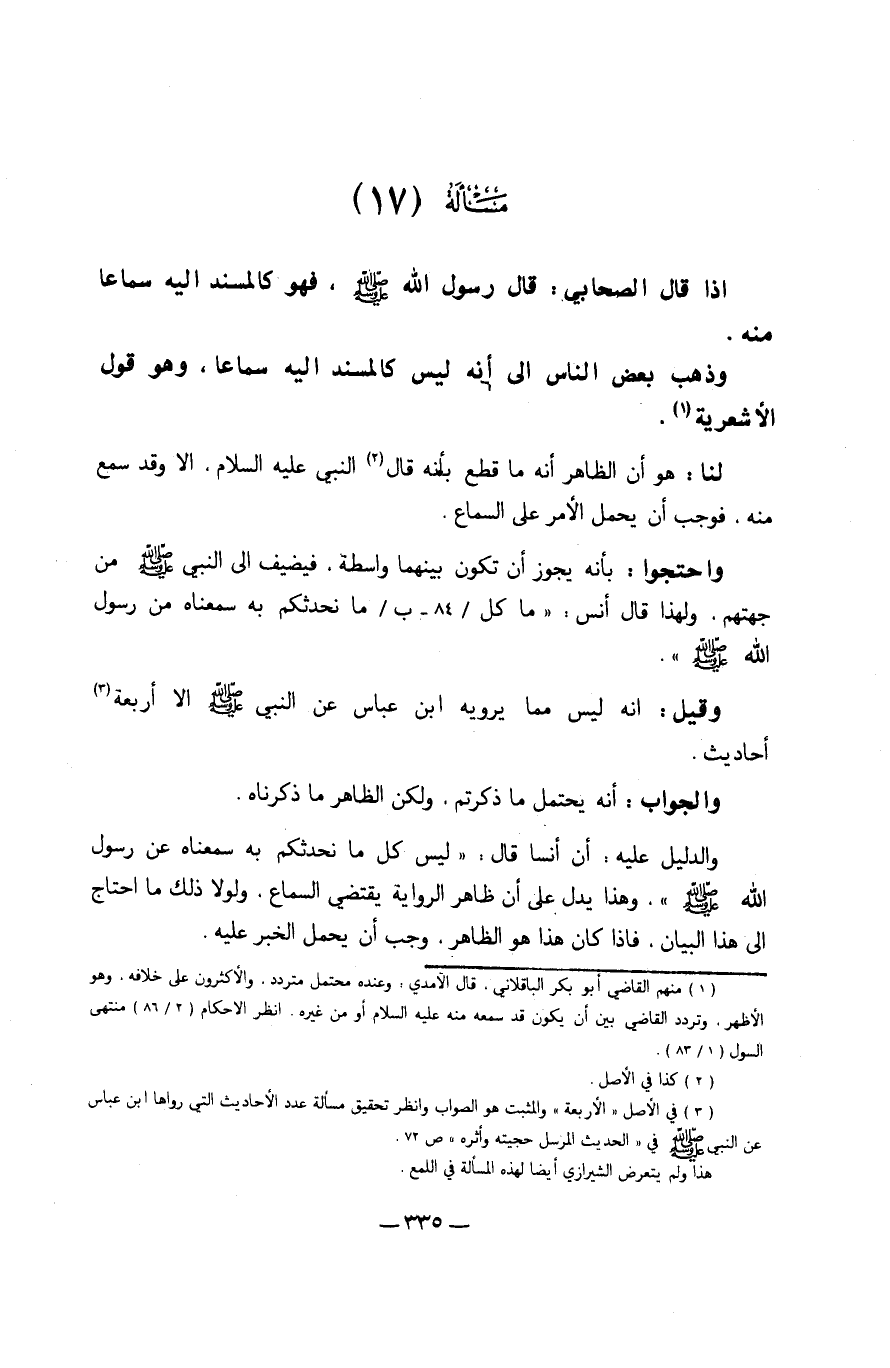 مَسْأَلَة (١٧)
اذا قال الصحابي : قال رسول الله ﷺ ، فهو كالمسند اليه سماعا
منه .
وذهب بعض الناس الى أنه ليس كالمسند اليه سماعا ، وهو قول
الأشعرية (١) .
لنا : هو أن الظاهر أنه ما قطع بأنه قال (٢) النبي عليه السلام ، الا وقد سمع
منه ، فوجب أن يحمل الأمر على السماع .
واحتجوا : بأنه يجوز أن تكون بينهما واسطة ، فيضيف الى النبي ﷺ من
جهتهم ، ولهذا قال أنس : « ما كل / ٨٤ ـ ب / ما نحدثكم به سمعناه من رسول
الله ﷺ » .
وقيل : انه ليس مما يرويه ابن عباس عن النبي ﷺ الا أربعة (٣)
أحاديث .
والجواب : أنه يحتمل ما ذكرتم ، ولكن الظاهر ما ذكرناه .
والدليل عليه : أن أنسا قال : « ليس كل ما نحدثكم به سمعناه عن رسول
الله ﷺ » ، وهذا يدل على أن ظاهر الرواية يقتضي السماع ، ولولا ذلك ما احتاج
الى هذا البيان ، فاذا كان هذا هو الظاهر ، وجب أن يحمل الخبر عليه .
( ١ ) منهم القاضي أبو بكر الباقلاني ، قال الآمدي : وعنده محتمل متردد ، والأكثرون على خلافه ، وهو
الأظهر ، وتردد القاضي بين أن يكون قد سمعه منه عليه السلام أو من غيره . انظر الاحكام ( ٢ / ٨٦ ) منتهى
السول ( ١ / ٨٣ ) .
( ٢ ) كذا في الأصل .
( ٣ ) في الأصل « الأربعة » والمثبت هو الصواب وانظر تحقيق مسألة عدد الأحاديث التي رواها ابن عباس
عن النبي ﷺ في « الحديث المرسل حجيته وأثره » ص ٧٢ .
هذا ولم يتعرض الشيرازي أيضا لهذه المسألة في اللمع .
— ٣٣٥ —